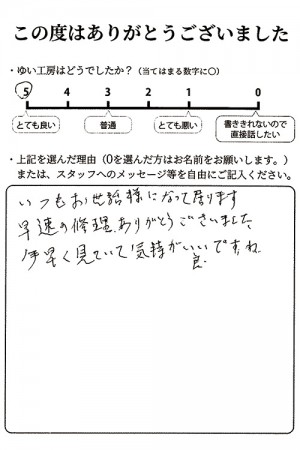 この度はありがとうございました
・ゆい工房はどうでしたか？（当てはまる数字に○）
5 4 3 2 1 0
とても良い 普通 とても悪い 書ききれないので直接話したい
・上記を選んだ理由（0を選んだ方はお名前をお願いします。）
または、スタッフへのメッセージ等を自由にご記入ください。
いつもお世話様になって居ります
早速の修理、ありがとうございました、
手早く見ていて気持がいいですね
良